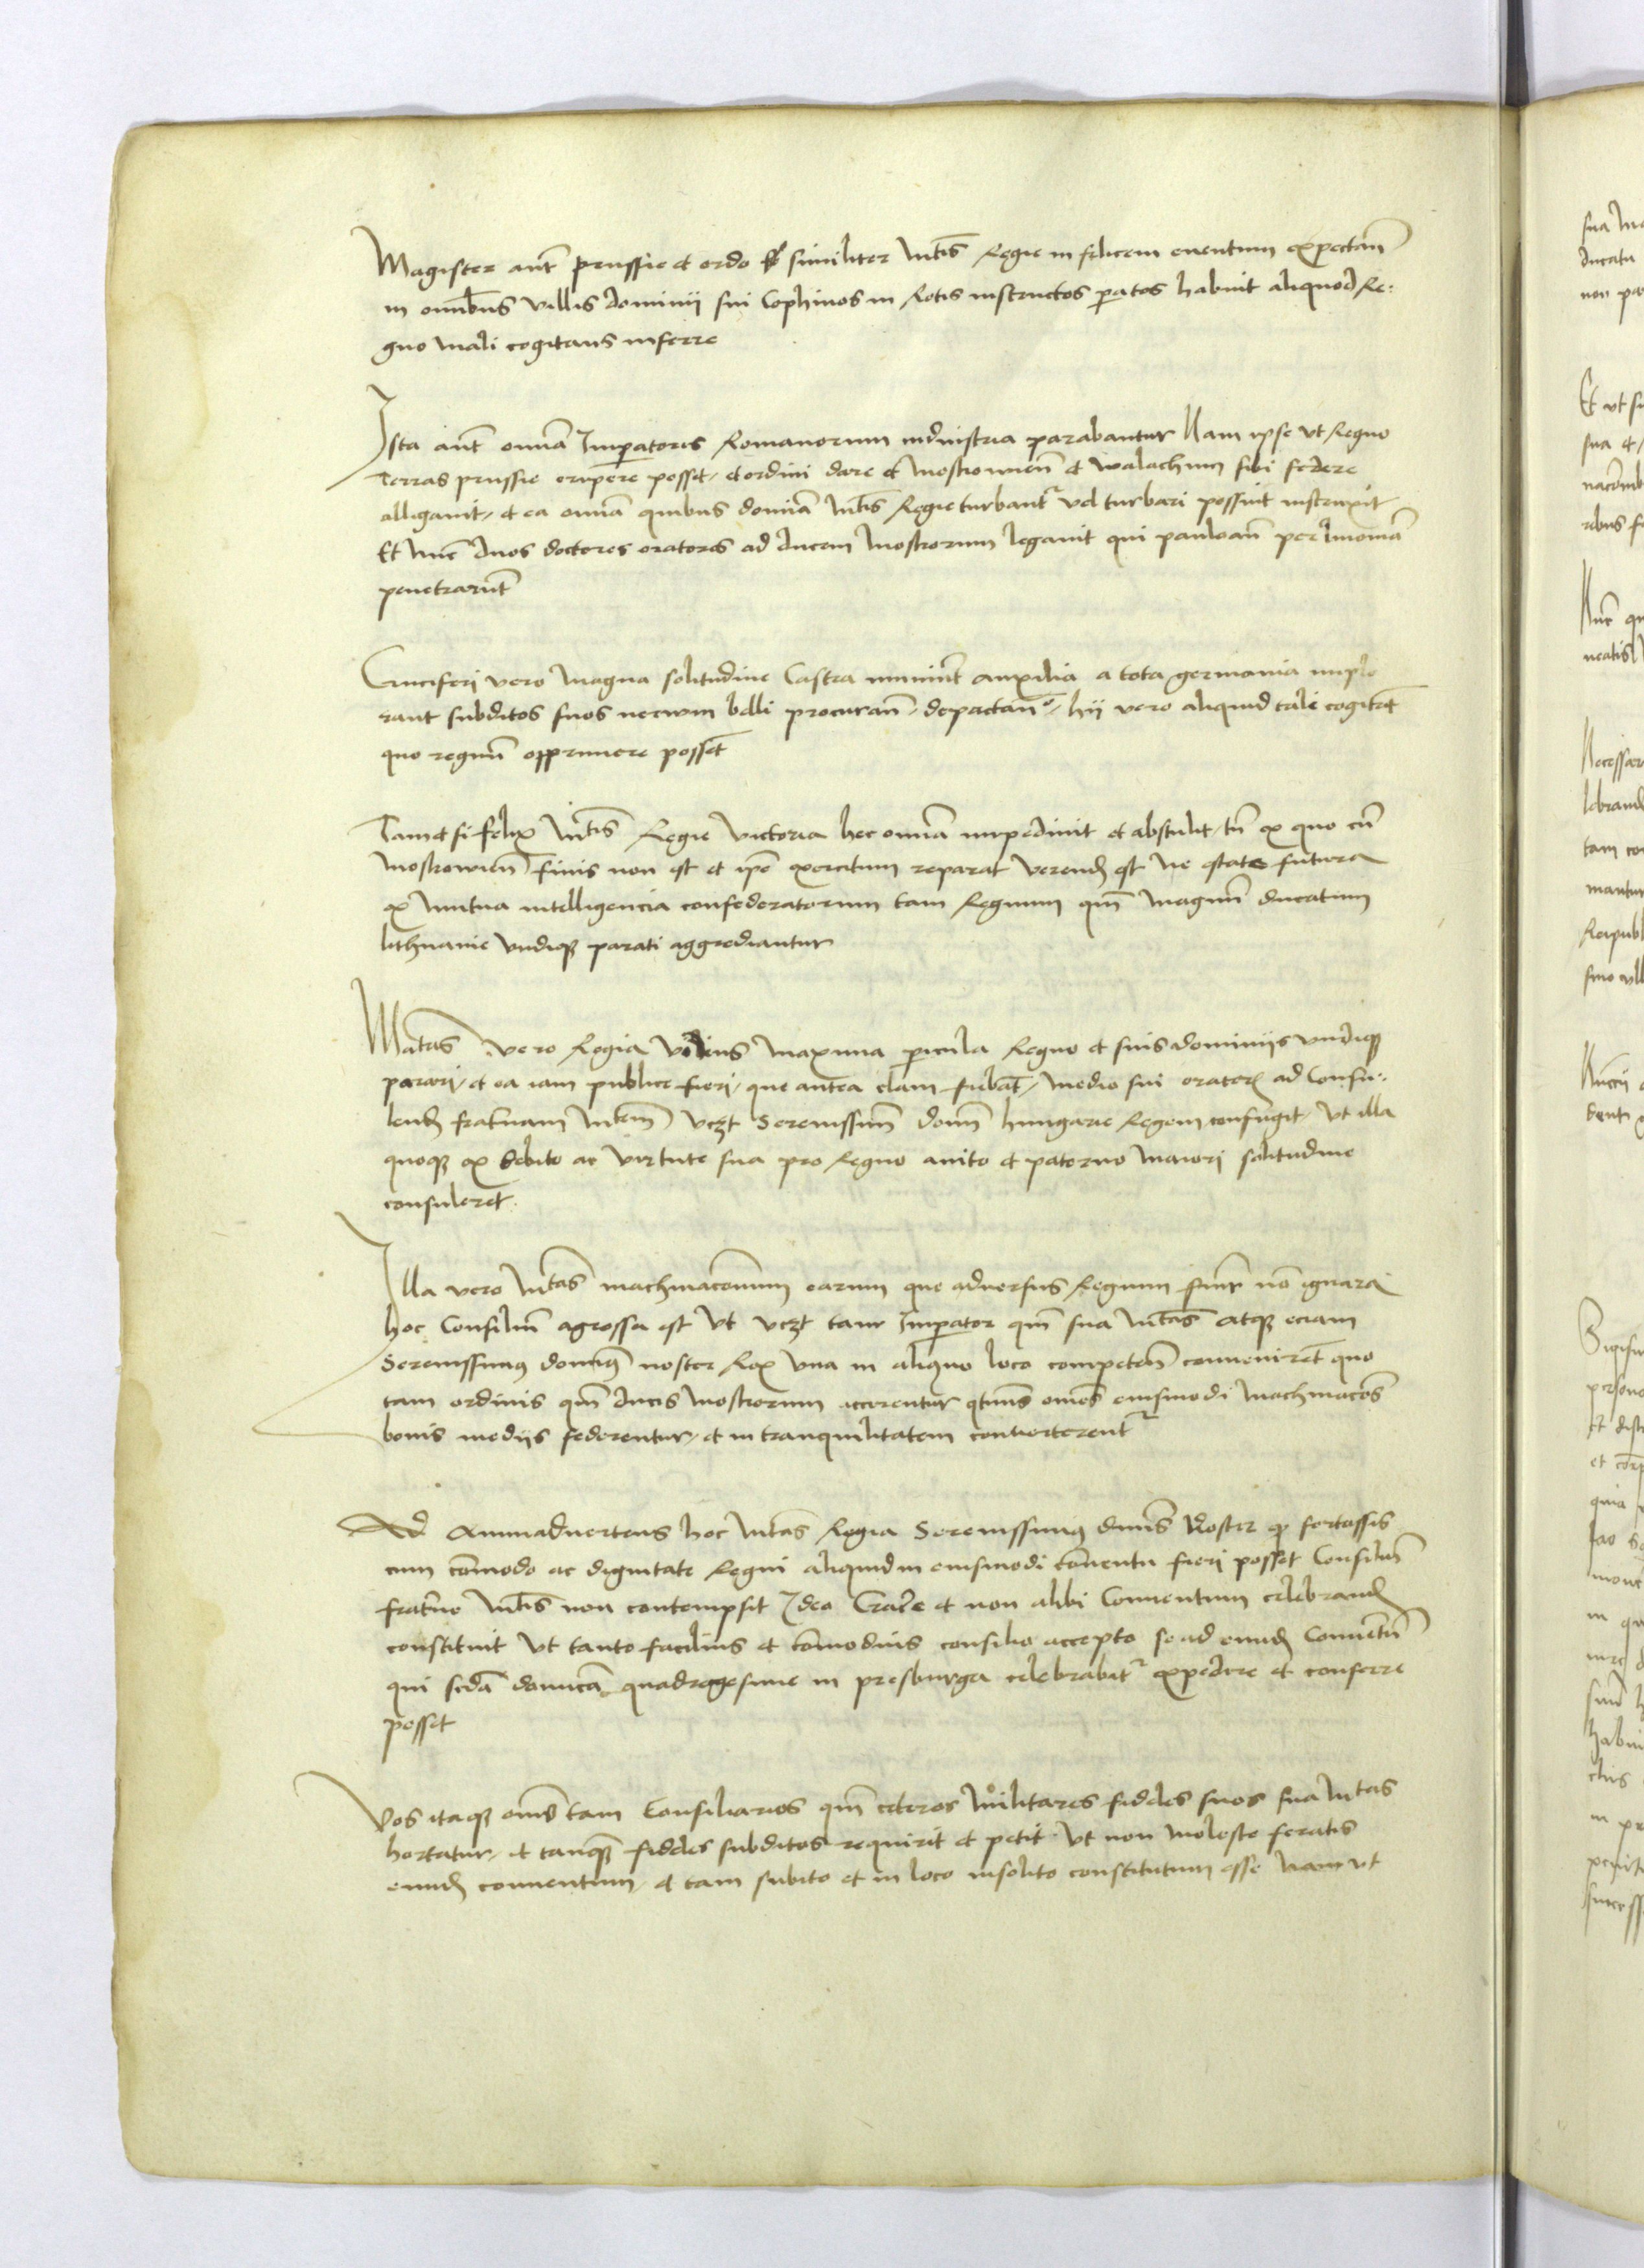 Magister aut prussie et ordo similiter Mtis Regie in felicem euentum expectan
in omnibus villis dominii sui Cophinos in Rotis instructos paratos habuit aliquod Re:
gno mali cogitans inferre
Ista aut omnia Imperatoris Romanorum industria parabantur Nam ipse vt Regno
Terras prussie eripere posset, et ordini dare et Moskouien et Walachum sibi federe
alligauit, et ea omnia quibus dominia Mtis Regie turbantur vel turbari possint instruxit
Et nunc duos doctores oratores ad ducem Moskorum legauit qui per liuoniam
penetrarunt
Cruciferi vero Magna solitudine Castra muniunt auxilia a tota germania implo
rant subditos suos neruum belli procuran, depactan, hii vero aliquid tale cogitant
quo regnum opprimere possent
Tametsi felix Mtis Regie victoria hec omnia impediuit et abstulit, tn ex quo cum
Moskouien finis non est et ipse exercitum reparat verend est ne estate futura
ex mutua intelligencia confederatorum tam Regnum qm Magnum ducatum
lithuanie vndique parati aggrediantur
Mtas vero Regia videns Maxima pericula Regno et suis dominiis vndique
parari, et ea iam publice fieri, que antea clam fiebant, medio sui orator ad Consu:
lend fraternam Mtem vczt Serenissimum domnum hungarie Regem confugit, vt illa
quoque ex debito ac virtute sua pro Regno auito et paterno maiori solitudine
consuleret.
Illa vero Mtas machinacionum earum que aduersus Regnum sunt no ignara
hoc Consilium agressa est vt vczt tam Imperator qm sua Mtas atque eciam
Serenissimus dominus noster Rex vna in aliquo loco competen conuenirent quo
tam ordinis qm ducis Moskorum accerentur omes eiusmodi Machinacoes
bonis mediis sederentur, et in tranquilitatem conuerterentur
Ad Animaduertens hoc Mtas Regia Serenissimus dnus Noster fortassis
cum comodo ac dignitate Regni aliquid in eiusmodi conuentu fieri posset Consilium
fraterne Mtis non contempsit Ideo Craće et non alibi Conuentum celebrand
constituit vt tanto facilius et comodius consilio accepto se ad eund Conuentum
qui secda dominica quadragesime in presburga celebrabitur expedire et conferre
posset
Vos itaque omes tam Consiliarios qm ceteros Militares fideles suos sua Mtas
hortatur, et tanquam fideles subditos requirit et petit vt non moleste feratis
eund conuentum, et tam subito et in loco insolito constitutum esse Nam vt